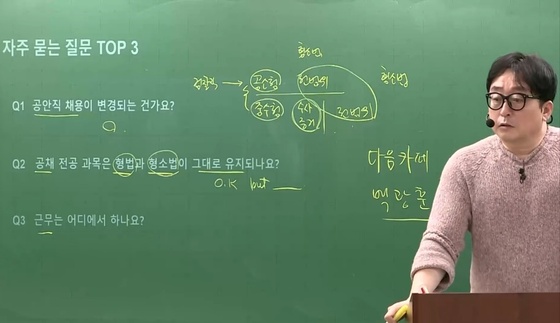 자주 묻는 질문 TOP 3
형소법
검찰청 → 공소청
중수청
수사
형소법
Q1 공안직 채용이 변경되는 건가요?
Q2 공채 전공 과목은 형법과 형소법이 그대로 유지되나요?
O.K but
다음카페
백광훈
Q3 근무는 어디에서 하나요?